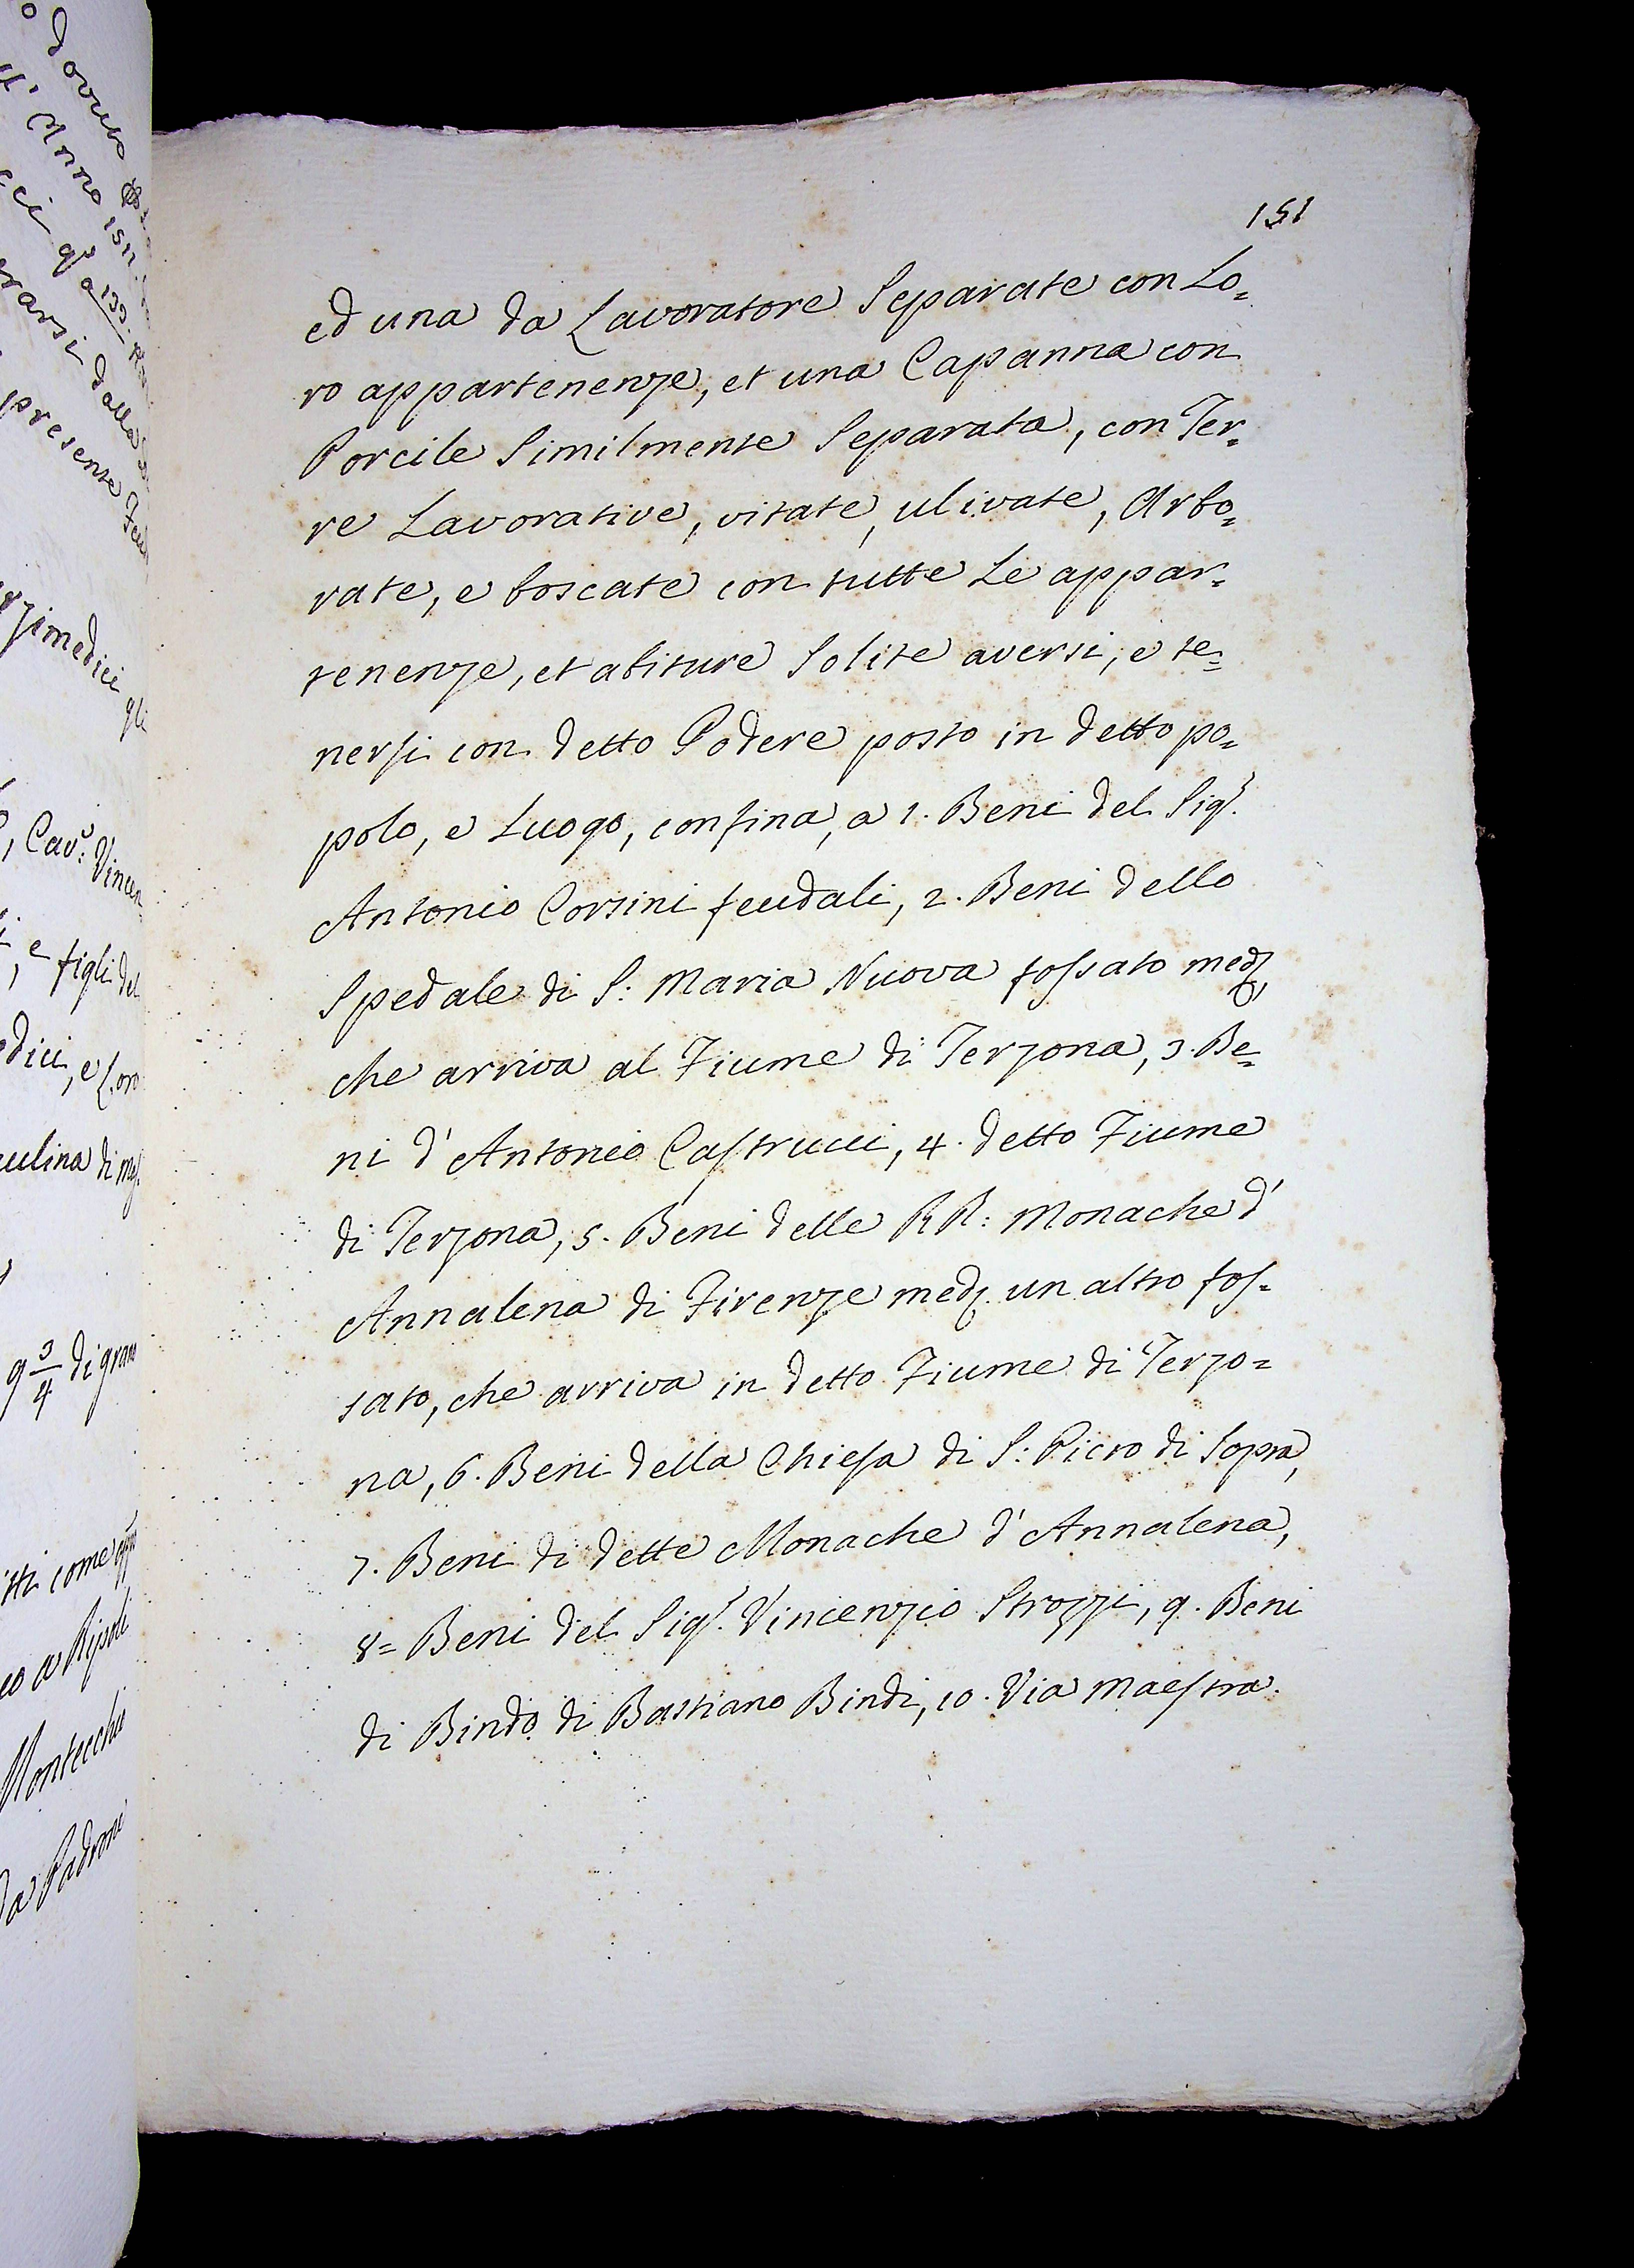 dovuto
ll' Anno 1511.
cci q.º a 133.
rarsi dalla
presente Feud
rzimedici gli
, Cav.e Vincen
i, e figli del
edici, e Loro
culina di
9 3/4 di grano
itti come
eo a Ripoli
Montecchi
da Padroni
151
ed una da Lavoratore Separate con Lo=
ro appartenenze, et una Capanna con
Porcile Similmente Separata, con Ter=
re Lavorative, vitate, ulivate, Arbo=
rate, e boscate con tutte Le appar=
tenenze, et abiture Solite aversi, e te=
nersi con detto Podere posto in detto po=
polo, e Luogo, confina, a 1. Beni del Sig.r
Antonio Corsini feudali, 2. Beni dello
Spedale di S: Maria Nuova fossato med.
che arriva al Fiume di Terzona, 3. Be=
ni d' Antonio Castrucci, 4. detto Fiume
di Terzona, 5. Beni delle RR: Monache d'
Annalena di Firenze med. un altro fos=
sato, che arriva in detto Fiume di Terzo=
na, 6. Beni della Chiesa di S: Piero di Sopra,
7. Beni di dette Monache d' Annalena,
8= Beni del Sig.r Vincenzio Strozzi, 9. Beni
di Bindo di Bastiano Bindi, 10. Via Maestra.